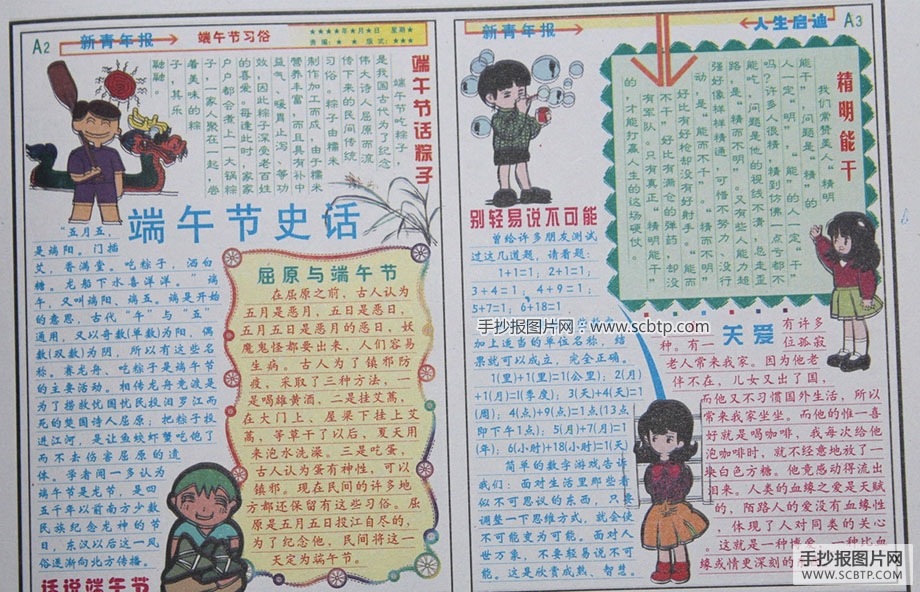 A2
新青年报
端午节习俗
★★★★年★月★日 星期★
责编:★ ★ 版式:★★★
端午节话粽子
端午节吃粽子,
是我国古代为了纪念
伟大诗人屈原而流
传下来的民间传统
习俗。粽子由糯米
制作加工而成,由于糯米
营养丰富,而且具有补中
益气、暖胃止泻、等功
效,因此粽子深受老百姓
的喜爱。每逢此时,家家
户户都会煮上一大锅粽
子,一家人聚在一起,尝
着美味的粽
子,其乐
融融。
端午节史话
“五月五,
是端阳。门插
艾,香满堂。吃粽子,洒白
糖。龙船下水喜洋洋。”端
午,又叫端阳、端五。端是开始
的意思,古代“午”与“五”
通用,又以奇数(单数)为阳,偶
数(双数)为阴,所以有这些名
称。赛龙舟、吃粽子是端午节
的主要活动。相传龙舟竞渡是
为了捞救忧国忧民投汨罗江而
死的楚国诗人屈原;把粽子投
进江河,是让鱼蛟虾蟹吃饱了
而不去伤害屈原的遗
体。学者闻一多认为
端午节是龙节,是四
五千年以前南方少数
民族纪念龙神的节
日,东汉以后这一风
俗逐渐向北方传播。
话说端午节
屈原与端午节
在屈原之前,古人认为
五月是恶月,五日是恶日,
五月五日是恶月的恶日,妖
魔鬼怪都要出来,人们容易
生病。古人为了镇邪防
疫,采取了三种方法,一
是喝雄黄酒,二是挂艾蒿,
在大门上、屋梁下挂上艾
蒿,等草干了以后,夏天用
来泡水洗澡。三是吃蛋,
古人认为蛋有神性,可以
镇邪。现在民间的许多地
方都还保留有这些习俗。屈
原是五月五日投江自尽的,
为了纪念他,民间将这一
天定为端午节。
A3
新青年报
人生启迪
精明能干
我们常赞美人“精明
能干”,问题是“精”的
人一定“明”,“能”的人一定“干”
吗?许多人很“精”,精到仿佛一点亏都不
能吃,问题是他的视线不清,总走歪
路,是“精而不明”。又有些人能力超
强,好像样样精通,可惜不努力、没行
动,是“能而不干”。“精而不明”
好比有好枪却没有好射手。“能而
不干”,好比有满仓的弹药,却没
有军队。只有真正“精明能干”
的,才能打赢人生的这场硬仗。
别轻易说不可能
曾给许多朋友测试
过这几道题,请看题:
1+1=1; 2+1=1;
3+4=1; 4+9=1;
5+7=1; 6+18=1
加上适当的单位名称,结
果就可以成立,完全正确。
1(里)+1(里)=1(公里); 2(月)
+1(月)=1(季度); 3(天)+4(天)=1
(周); 4(点)+9(点)=1点(13点
即下午1点; 5(月)+7(月)=1
(年); 6(小时)+18(小时)=1(天)
简单的数字游戏告诉
我们:面对生活里那些看
似不可思议的东西,只要
调整一下思维方式,就会使
不可能变为可能。面对人
世万象,不要轻易说不可
能。这是欣赏成熟、智慧。
关爱
有许多
种。有一位孤寂
老人常来我家。因为他老
伴不在,儿女又出了国,
而他又不习惯国外生活,所以
常来我家坐坐。而他的惟一喜
好就是喝咖啡,我每次给他
泡咖啡时,就不经意地放了一
块白色方糖。他竟感动得流出
泪来。人类的血缘之爱是天赋
的,陌路人的爱没有血缘性
,体现了人对同类的关心
。这就是一种博爱,一种比血
缘或情更深刻的
手抄报图片网:www.scbtp.com
手抄报图片网
WWW.SCBTP.COM